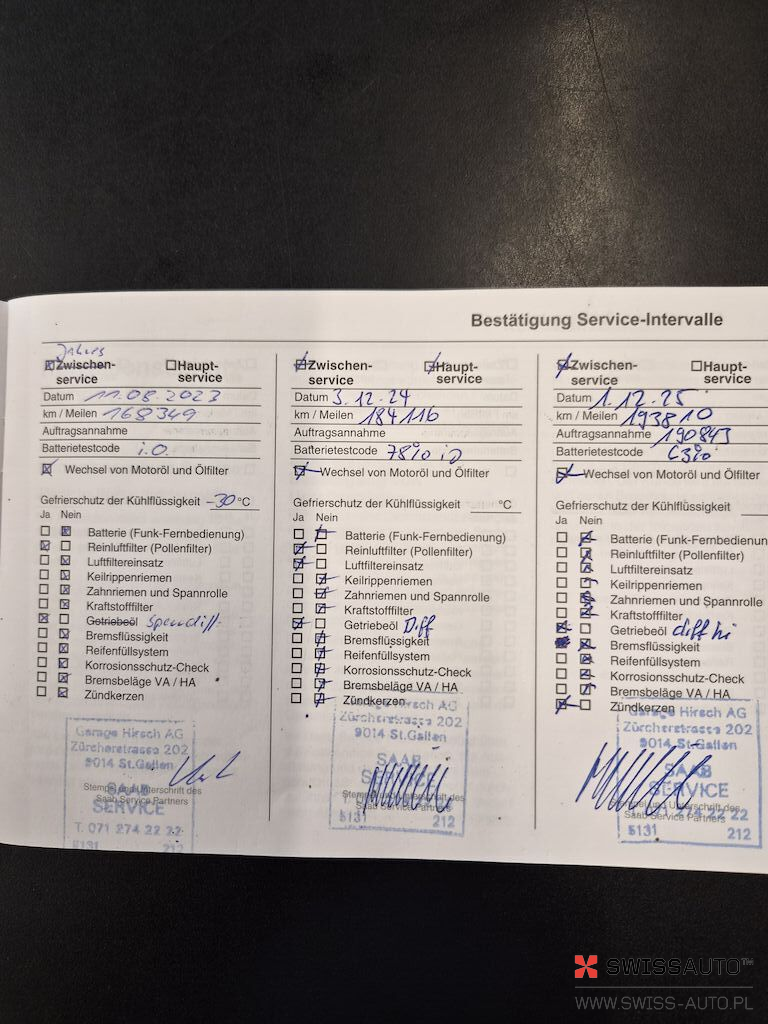 Bestätigung Service-Intervalle
Jahres
Zwischen-
service
Haupt-
service
Datum 11.08.2023
km / Meilen 168349
Auftragsannahme
Batterietestcode i.O.
Wechsel von Motoröl und Ölfilter
Gefrierschutz der Kühlflüssigkeit -30 °C
Ja Nein
Batterie (Funk-Fernbedienung)
Reinluftfilter (Pollenfilter)
Luftfiltereinsatz
Keilrippenriemen
Zahnriemen und Spannrolle
Kraftstofffilter
Getriebeöl
Bremsflüssigkeit
Reifenfüllsystem
Korrosionsschutz-Check
Bremsbeläge VA / HA
Zündkerzen
Garage Hirsch AG
Zürcherstrasse 202
9014 St.Gallen
SAAB
SERVICE
Stempel und Unterschrift des
Saab Service Partners
T. 071 274 22 22
5131 212
Zwischen-
service
Haupt-
service
Datum 3.12.24
km / Meilen 184116
Auftragsannahme
Batterietestcode 78% iO
Wechsel von Motoröl und Ölfilter
Gefrierschutz der Kühlflüssigkeit °C
Ja Nein
Batterie (Funk-Fernbedienung)
Reinluftfilter (Pollenfilter)
Luftfiltereinsatz
Keilrippenriemen
Zahnriemen und Spannrolle
Kraftstofffilter
Getriebeöl Diff
Bremsflüssigkeit
Reifenfüllsystem
Korrosionsschutz-Check
Bremsbeläge VA / HA
Zündkerzen
Garage Hirsch AG
Zürcherstrasse 202
9014 St.Gallen
SAAB
SERVICE
Saab Service Partners
5131 212
Zwischen-
service
Haupt-
service
Datum 1.12.25
km / Meilen 193810
Auftragsannahme 190843
Batterietestcode
Wechsel von Motoröl und Ölfilter
Gefrierschutz der Kühlflüssigkeit
Ja Nein
Batterie (Funk-Fernbedienun
Reinluftfilter (Pollenfilter)
Luftfiltereinsatz
Keilrippenriemen
Zahnriemen und Spannrolle
Kraftstofffilter
Getriebeöl diff hi
Bremsflüssigkeit
Reifenfüllsystem
Korrosionsschutz-Check
Bremsbeläge VA / HA
Zündkerzen
Garage Hirsch AG
Zürcherstrasse 202
9014 St.Gallen
SAAB
SERVICE
Stempel und Unterschrift des
Saab Service Partners
5131 212
SWISSAUTO™
WWW.SWISS-AUTO.PL